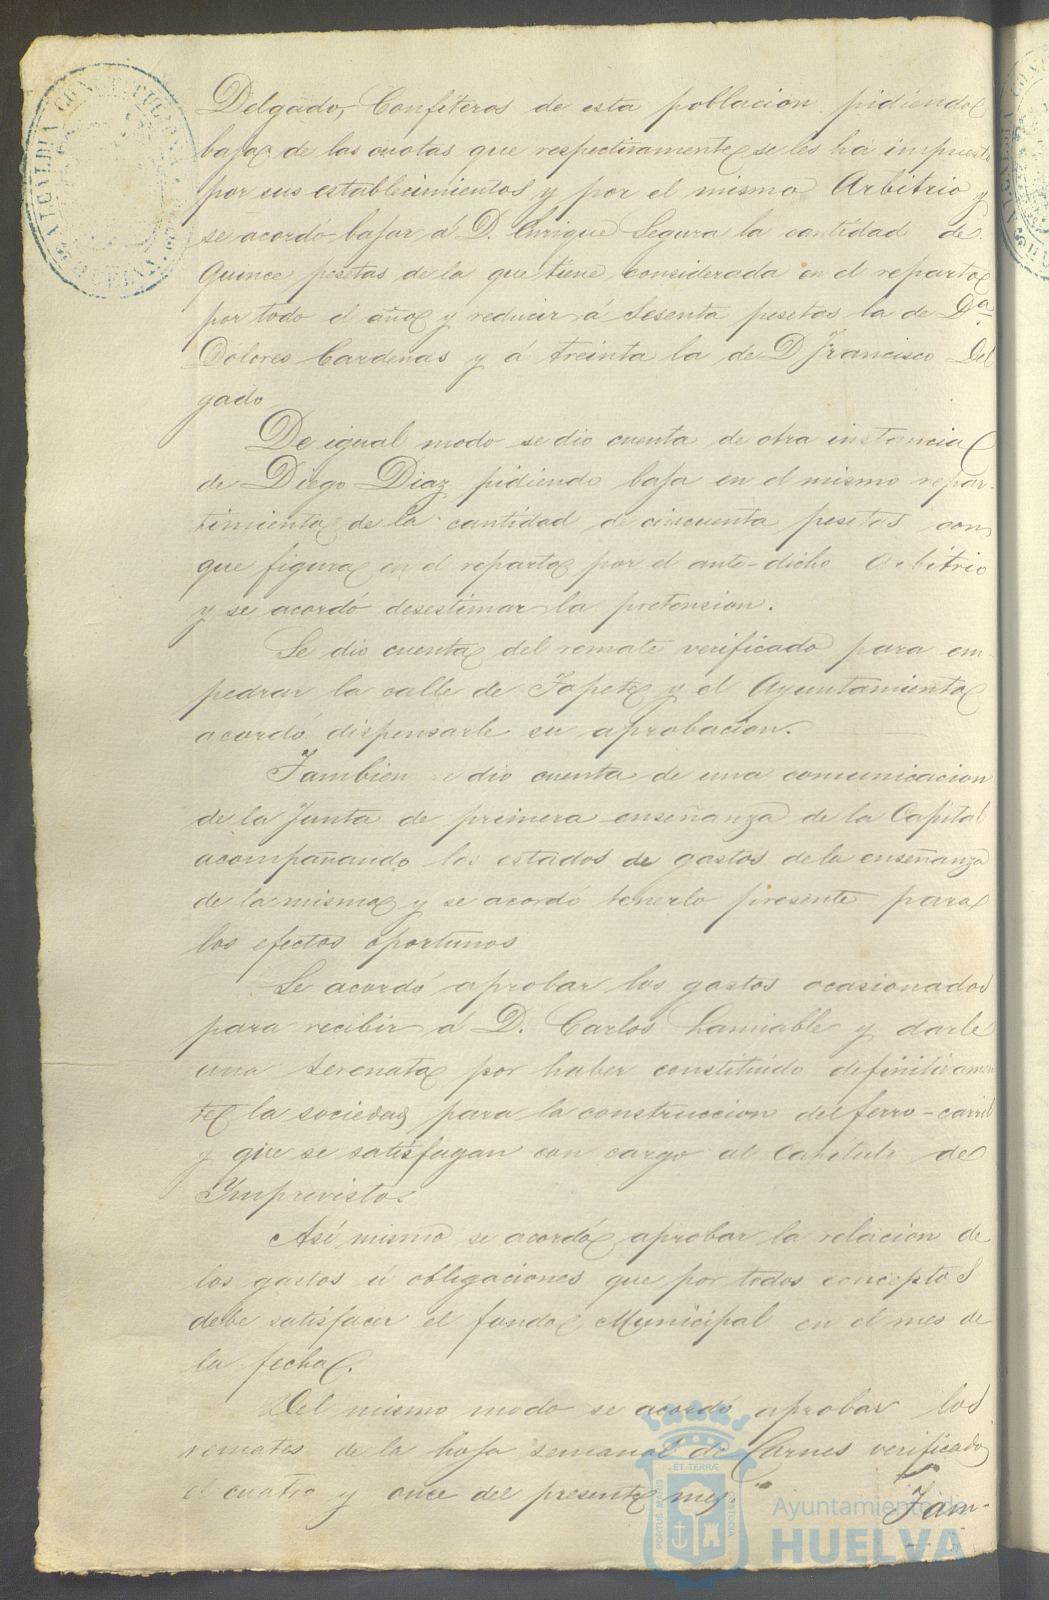 Delgado, Confiteros de esta poblacion pidiendo
baja de las cuotas que respectivamente se les há impuesto
por sus establecimientos y por el mismo Arbitrio y
se acordo bajar á D. Enrique Segura la cantidad de
Quince pesetas de la que tiene considerada en el reparto
por todo el año y reducir á Sesenta pesetas la de Dª
Dolores Cardenas y á treinta la de D Francisco Del
gado
De igual modo se dio cuenta de otra instancia
de Diego Diaz pidiendo baja en el mismo repar-
timiento de la cantidad de cincuenta pesetas con
que figura en el reparto por el ante-dicho Arbitrio
y se acordó desestimar la pretension.
Se dio cuenta del remate verificado para em
pedrar la calle de Tapete y el Ayuntamiento
acordó dispensarle su aprobacion.
Tambien se dio cuenta de una comunicacion
de la Junta de primera enseñanza de la Capital
acompañando los estados de gastos de la enseñanza
de la misma y se acordó tenerlo presente para
los efectos oportunos
Se acordó aprobar los gastos ocasionados
para recibir á D. Carlos Lamiable y darle
una Serenata por haber constituido definitivamen
te la sociedad para la construccion del ferro-carril
y que se satisfagan con cargo al Capitulo de
Imprevistos
Así mismo se acordó aprobar la relacion de
los gastos ú obligaciones que por todos conceptos
debe satisfacer el fondo Municipal en el mes de
la fecha.
Del mismo modo se acordó aprobar los
remates de la hoja semanal de Carnes verificado
el cuatro y once del presente mes.
Tam-
ALCALDIA CONSTITUCIONAL
PORTUS MARIS ET TERRÆ CUSTODIA
Ayuntamiento de
HUELVA